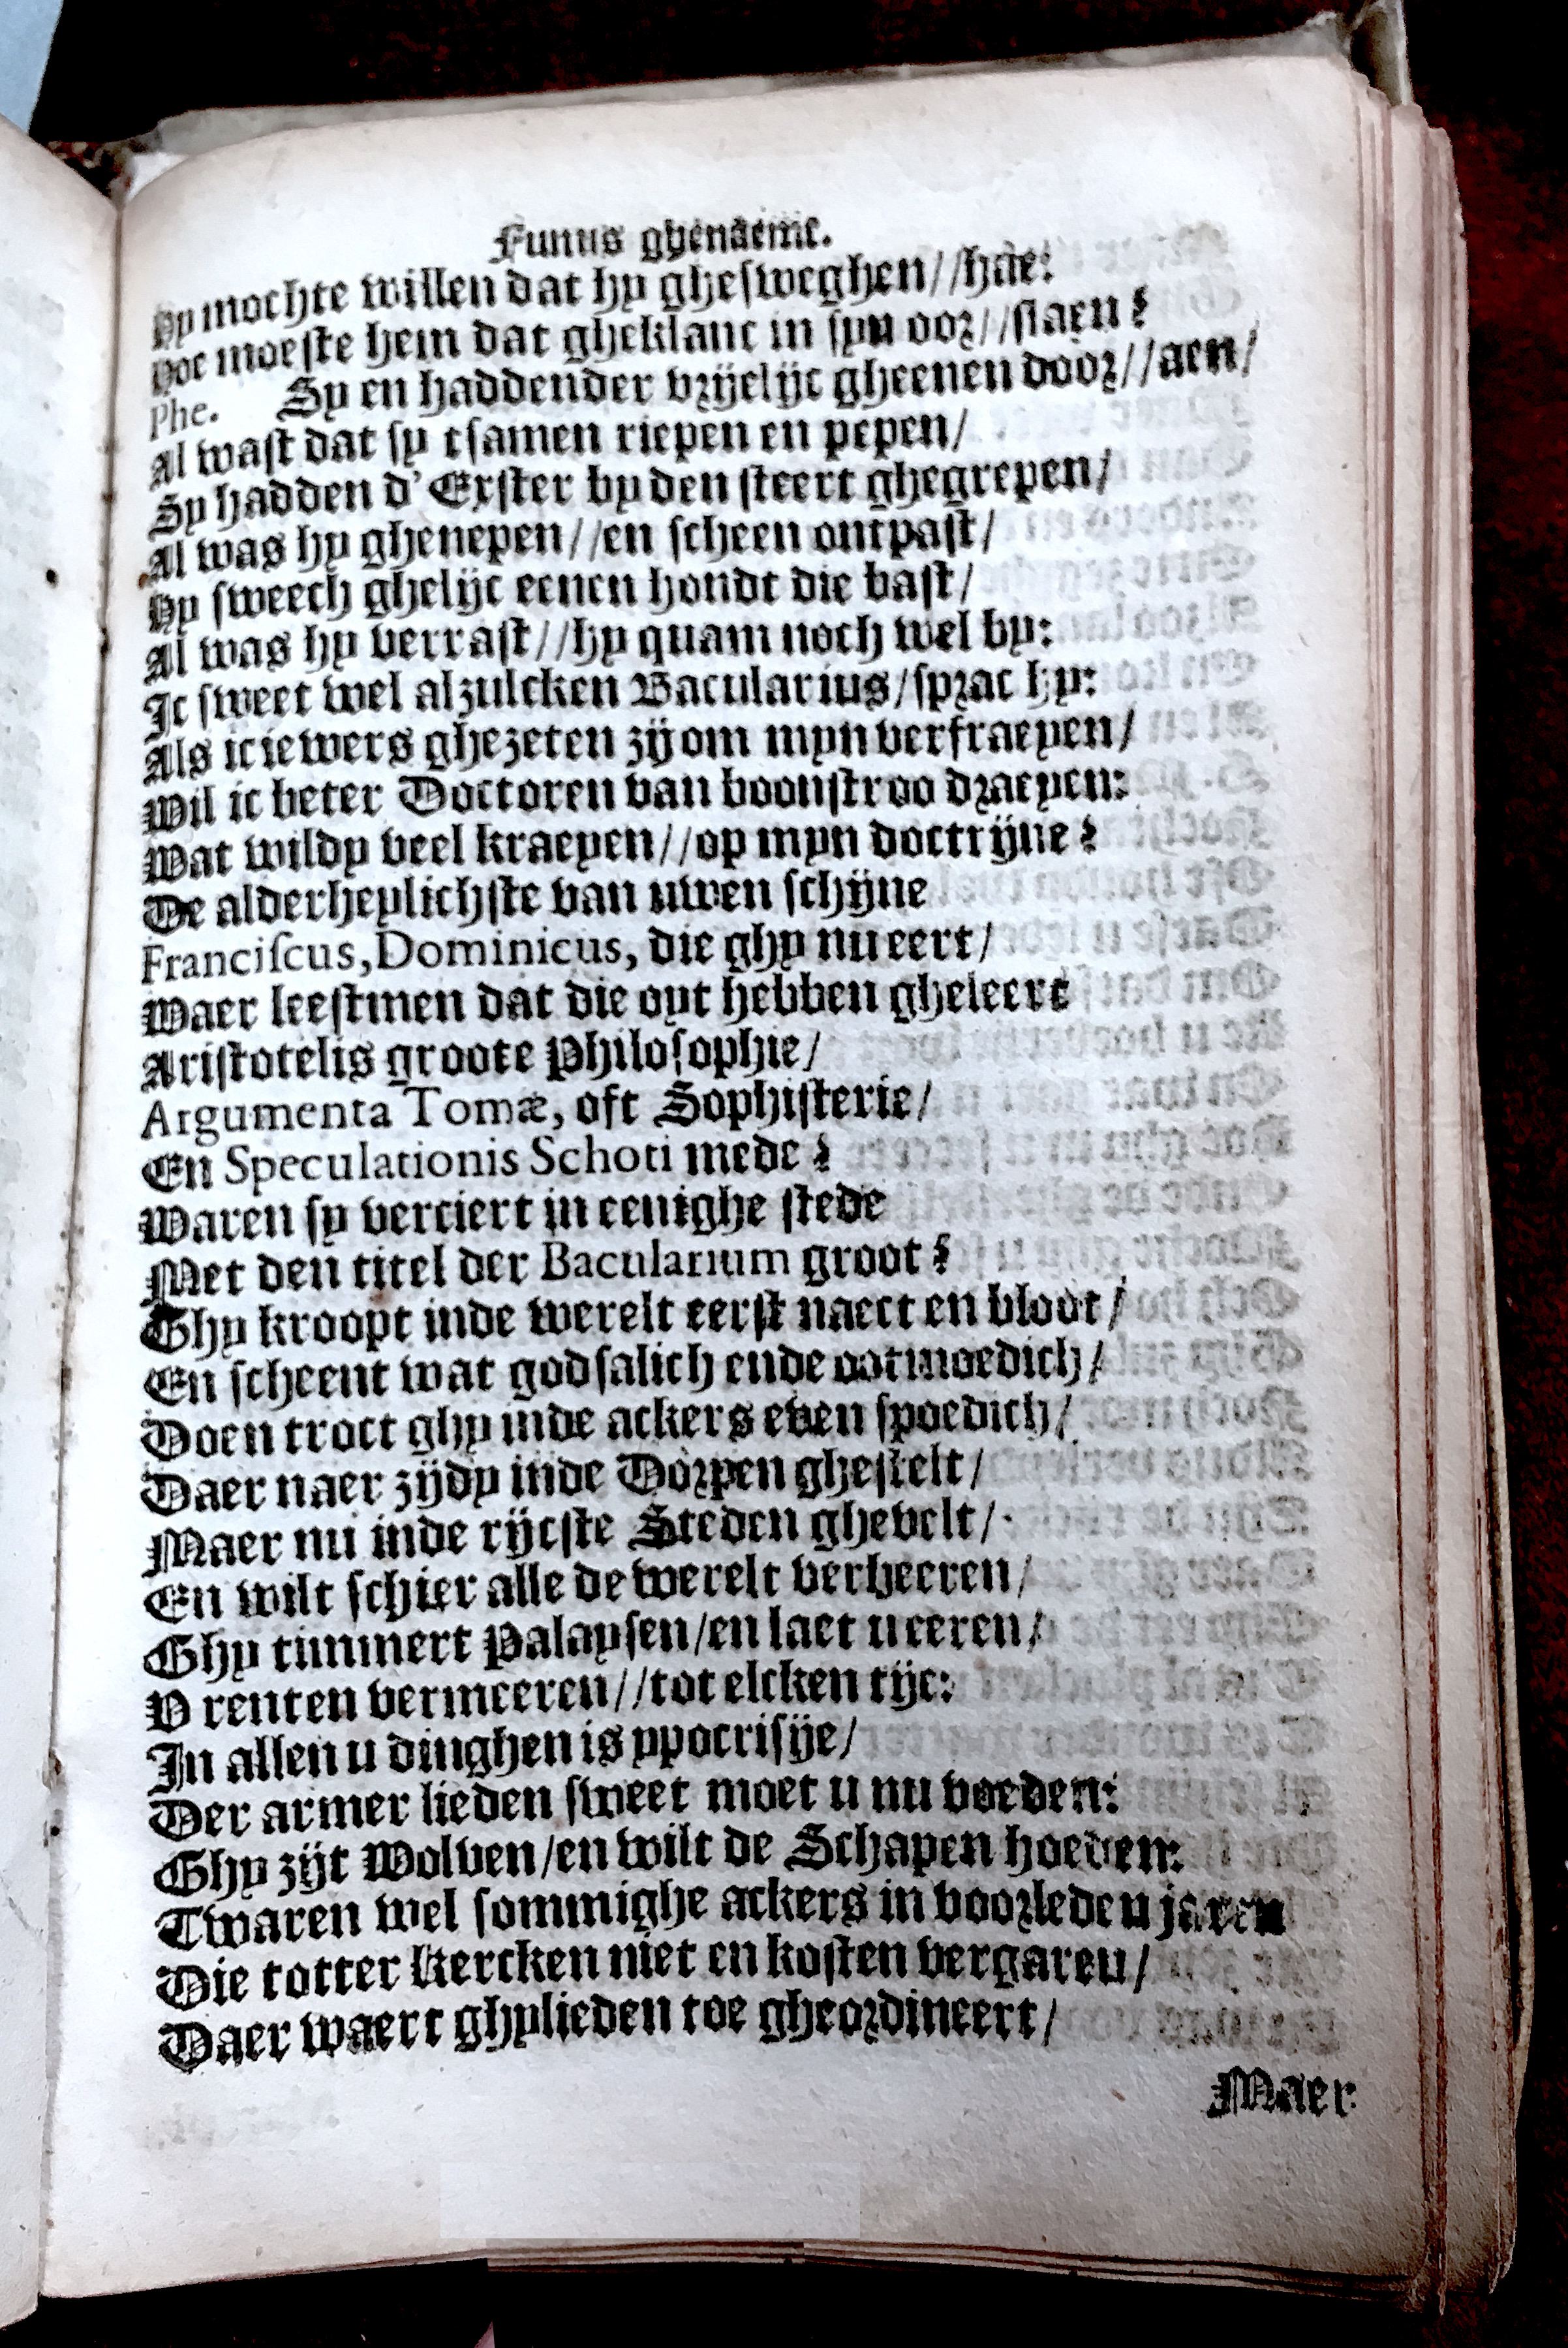 Funus ghenaemt.
Hy mochte willen dat hy ghesweghen//hae:
Hoe moeste hem dat gheklanc in syn oor//slaen?
Phe. Sy en haddender vrijelijc gheenen door//aen/
Al wast dat sy tsamen riepen en pepen/
Sy hadden d'Exster by den steert ghegrepen/
Al was hy ghenepen//en scheen ontpast/
Hy sweech ghelijc eenen hondt die bast/
Al was hy verrast//hy quam noch wel by:
Ic sweet wel alzulcken Bacularius/sprac hy:
Als ic iewers ghezeten zij om myn verfraeyen/
Wil ic beter Doctoren van boonstroo draeyen:
Wat wildy veel kraeyen//op myn doctrijne?
De alderheylichste van uwen schijne
Franciscus, Dominicus, die ghy nu eert/
Waer leestmen dat die oyt hebben gheleert
Aristotelis groote Philosophie/
Argumenta Tomæ, oft Sophisterie/
En Speculationis Schoti mede?
Waren sy verciert in eenighe stede
Met den titel der Bacularium groot?
Ghy kroopt inde werelt eerst naect en bloot/
En scheent wat godsalich ende ootmoedich/
Doen troct ghy inde ackers even spoedich/
Daer naer zijdy inde Dorpen ghestelt/
Maer nu inde rijcste Steden ghevelt/
En wilt schier alle de werelt verheeren/
Ghy timmert Palaysen/en laet u eeren/
V renten vermeeren//tot elcken tijc:
In allen u dinghen is ypocrisije/
Der armer lieden sweet moet u nu voeden:
Ghy zijt Wolven/en wilt de Schapen hoeden:
Twaren wel sommighe ackers in voorleden jaren
Die totter kercken niet en kosten vergaren/
Daer waert ghylieden toe gheordineert/
Maer